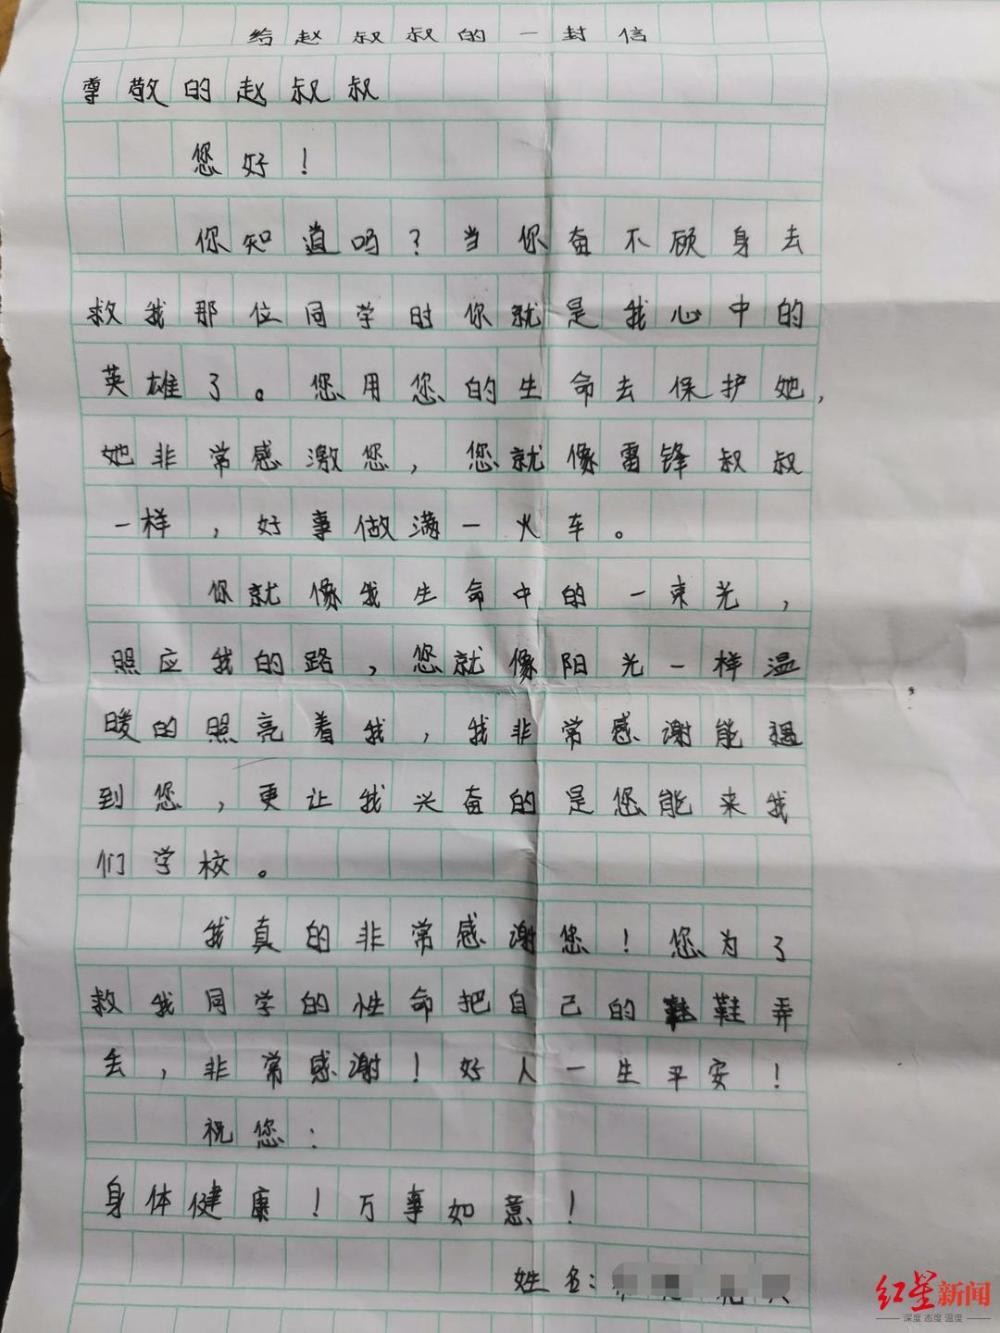 给赵叔叔的一封信
尊敬的赵叔叔
您好！
你知道吗？当你奋不顾身去
救我那位同学时你就是我心中的
英雄了。您用您的生命去保护她，
她非常感激您，您就像雷锋叔叔
一样，好事做满一火车。
你就像我生命中的一束光，
照应我的路，您就像阳光一样温
暖的照亮着我，我非常感谢能遇
到您，更让我兴奋的是您能来我
们学校。
我真的非常感谢您！您为了
救我同学的性命把自己的鞋弄
去，非常感谢！好人一生平安！
祝您：
身体健康！万事如意！
姓名：
红星新闻
深度 态度 温度